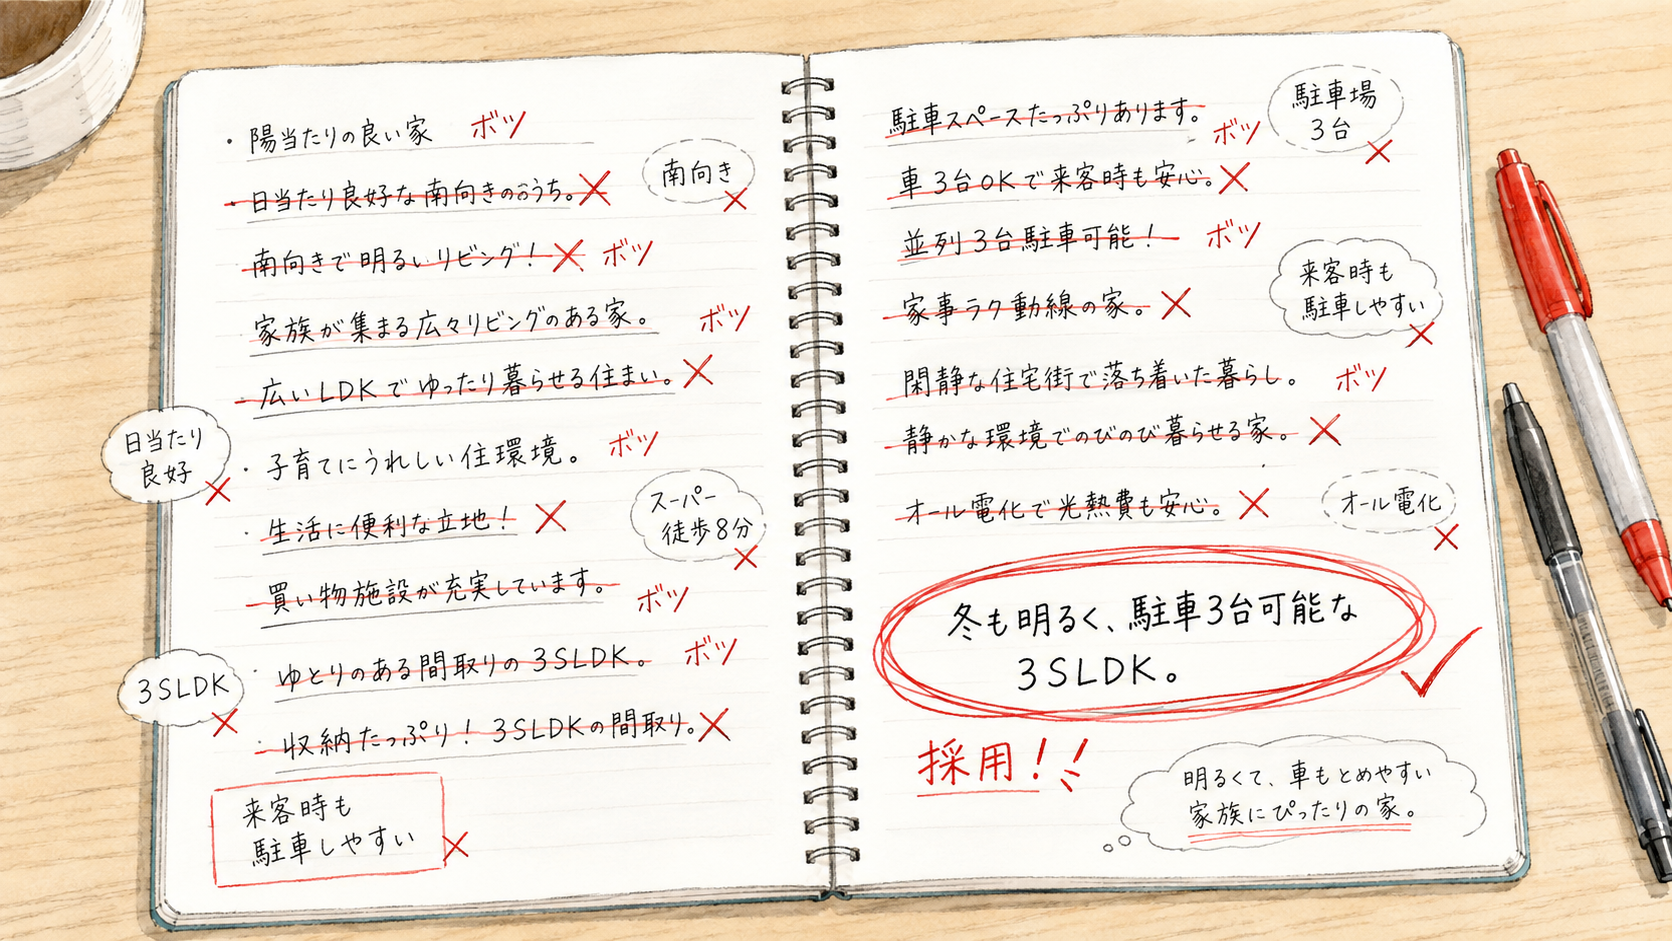 ・陽当たりの良い家 ボツ
・日当たり良好な南向きのおうち。×
南向き
×
南向きで明るいリビング！× ボツ
家族が集まる広々リビングのある家。 ボツ
・広いLDKでゆったり暮らせる住まい。×
日当たり
良好
×
・子育てにうれしい住環境。 ボツ
・生活に便利な立地！ ×
スーパー
徒歩8分
×
買い物施設が充実しています。 ボツ
・ゆとりのある間取りの3SLDK。 ボツ
3SLDK
×
・収納たっぷり！3SLDKの間取り。×
来客時も
駐車しやすい
×
駐車スペースたっぷりあります。 ボツ
駐車場
3台
×
車3台OKで来客時も安心。×
並列3台駐車可能！ ボツ
来客時も
駐車しやすい
×
家事ラク動線の家。×
閑静な住宅街で落ち着いた暮らし。 ボツ
静かな環境でのびのび暮らせる家。×
オール電化で光熱費も安心。×
オール電化
×
冬も明るく、駐車3台可能な
3SLDK。
採用！！
明るくて、車もとめやすい
家族にぴったりの家。